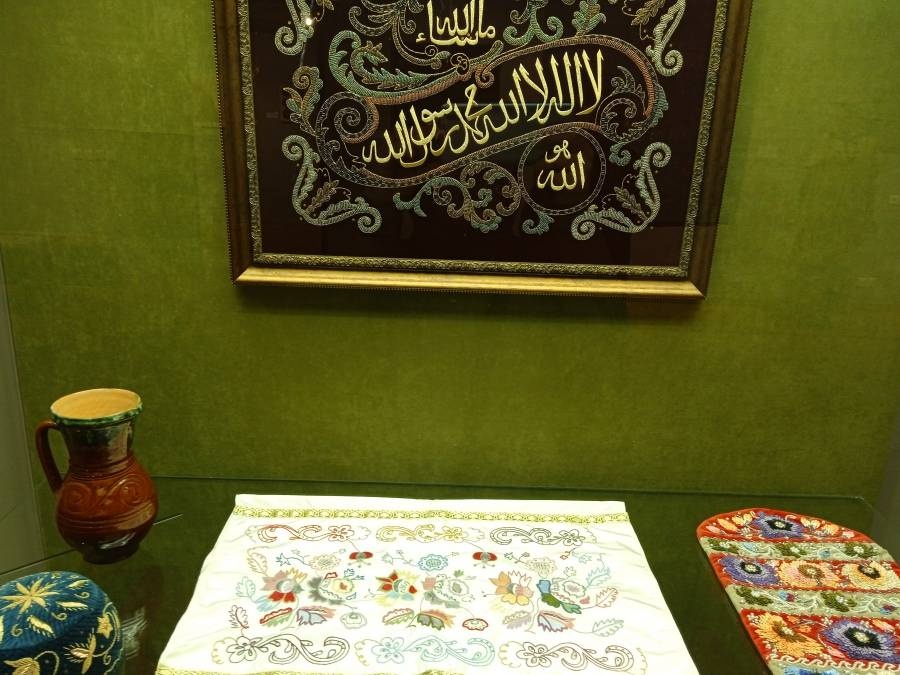 ماشاء الله
لا اله الا الله محمد رسول الله
هو
الله